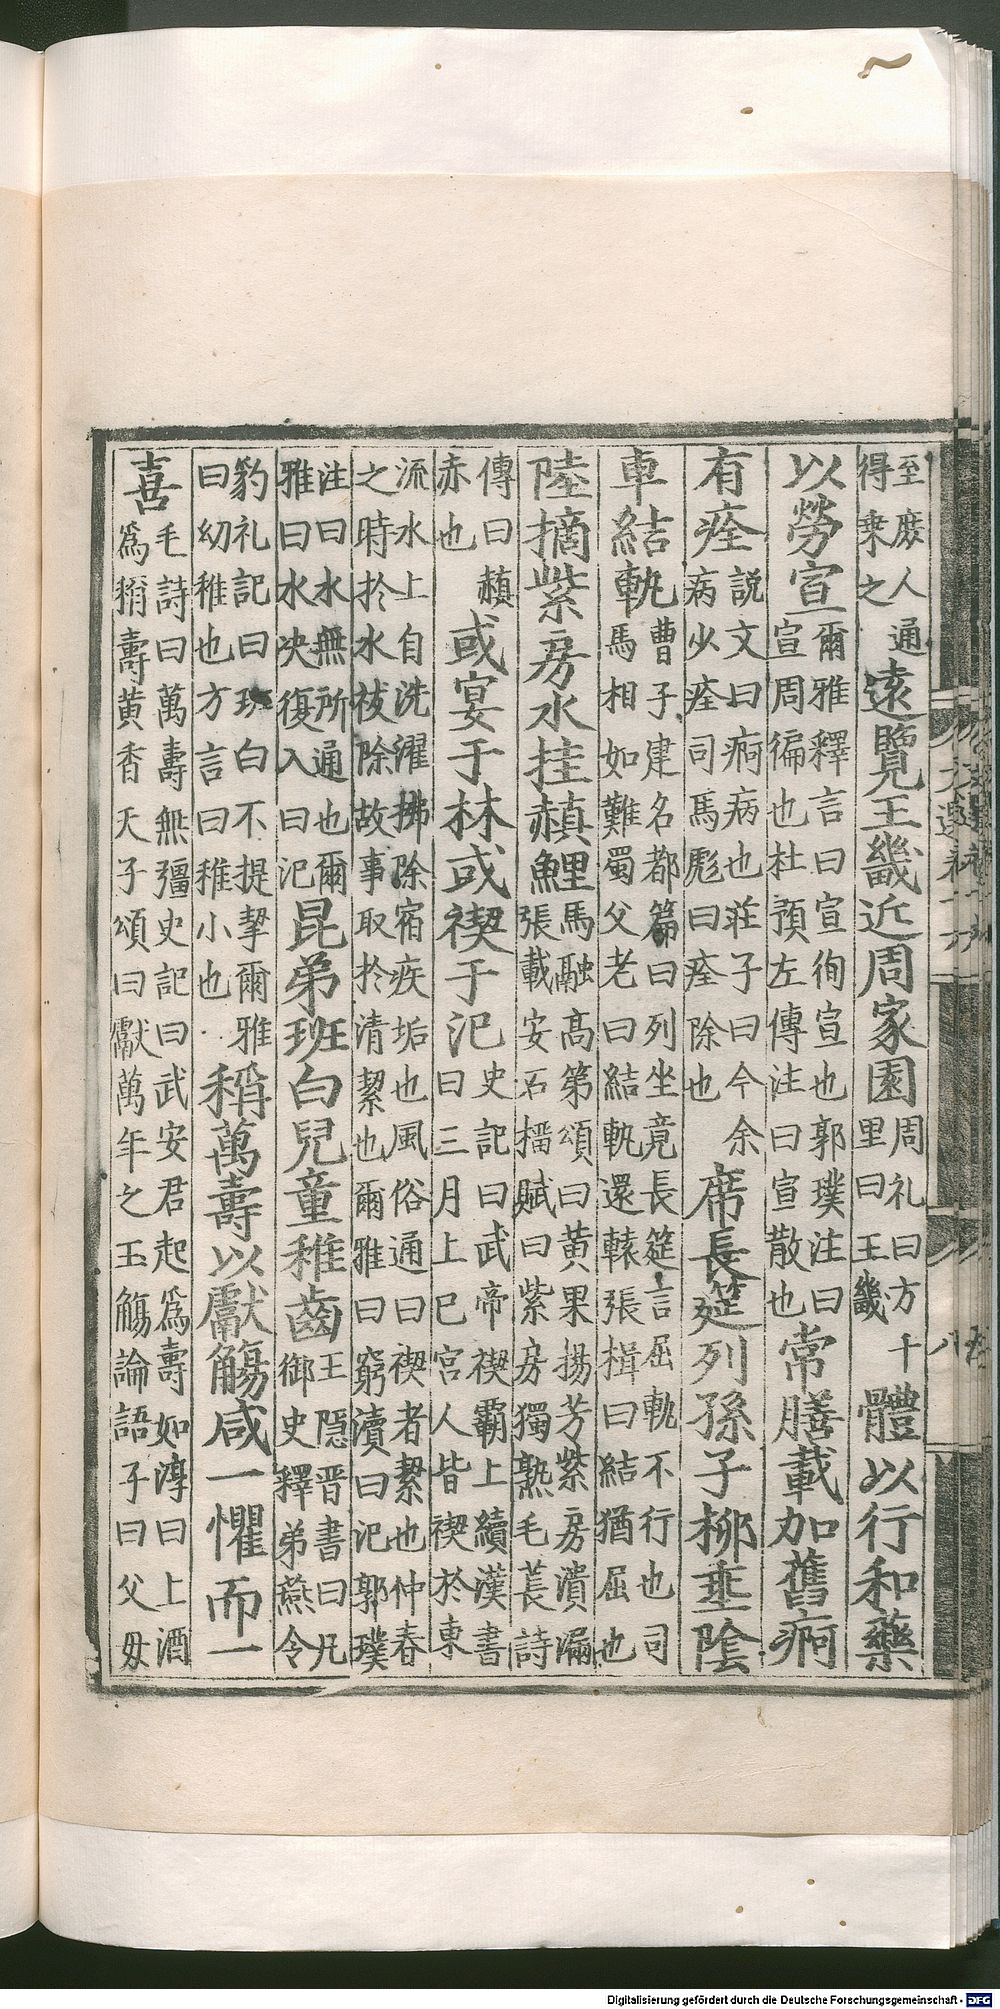 至庶人通得乗之遠覽王畿近周家園周礼曰方十里曰王畿體以行和藥
以勞宣爾雅釋言曰宣徇宣也郭璞注曰宣周徧也杜預左傳注曰宣散也常膳載加舊痾
有痊説文曰痾病也莊子曰今余病少痊司馬彪曰痊除也席長筵列孫子柳垂陰
車結軌曹子建名都篇曰列坐竟長筵言屈軌不行也司馬相如難蜀父老曰結軌還轅張揖曰結猶屈也
陸摘紫房水挂赬鯉馬融高第頌曰黄果揚芳紫房潰漏張載安石榴賦曰紫房獨熟毛萇詩
傳曰赬赤也或宴于林或禊于汜史記曰武帝禊霸上續漢書曰三月上巳宫人皆禊於東
流水上自洗濯拂除宿疾垢也風俗通曰禊者絜也仲春之時於水祓除故事取於清絜也爾雅曰窮瀆曰汜郭璞
注曰水無所通也爾雅曰水决復入曰汜昆弟班白兒童稚齒王隱晋書曰凡御史釋弟燕令
豹礼記曰班白不提挈爾雅曰幼稚也方言曰稚小也稱萬壽以獻觴咸一懼而一
喜毛詩曰萬壽無彊史記曰武安君起爲壽如淳曰上酒爲稱壽黄香天子頌曰獻萬年之玉觴論語子曰父母
Digitalisierung gefördert durch die Deutsche Forschungsgemeinschaft - DFG